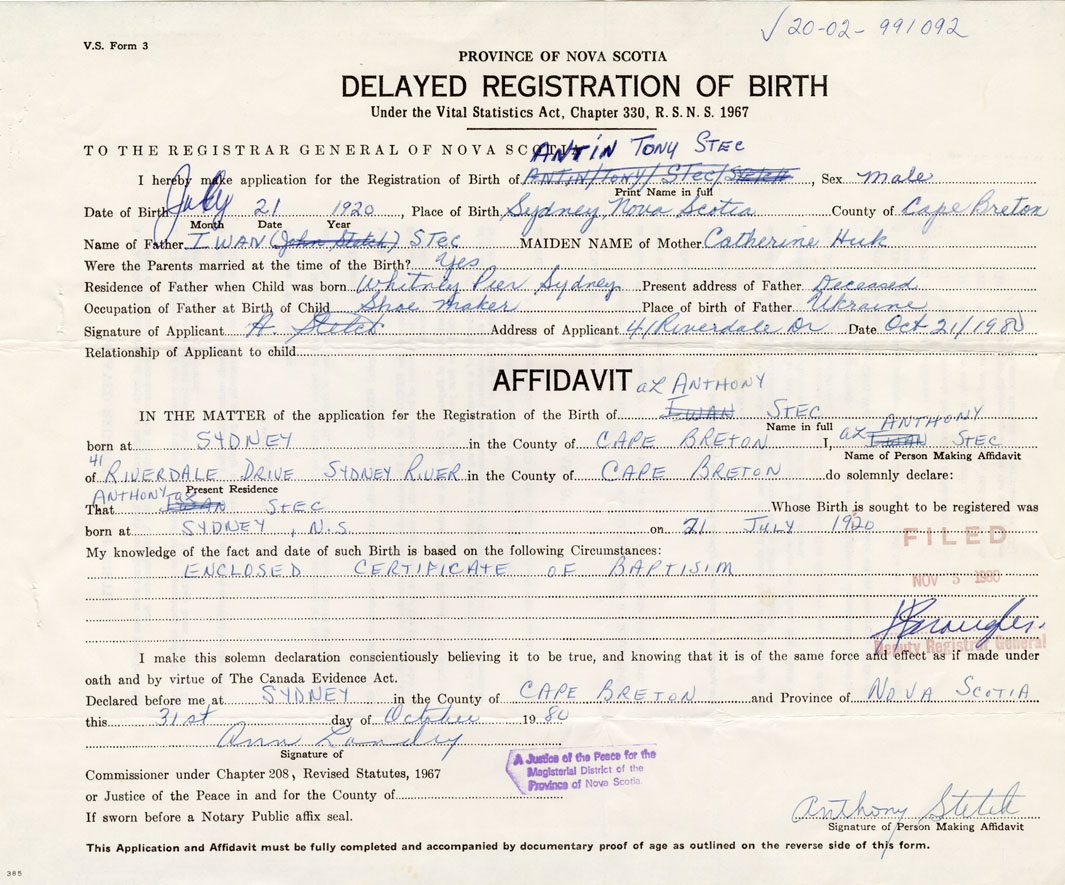 √20-02-991092
V.S. Form 3
PROVINCE OF NOVA SCOTIA
DELAYED REGISTRATION OF BIRTH
Under the Vital Statistics Act, Chapter 330, R.S.N.S. 1967
ANTIN TONY STEC
TO THE REGISTRAR GENERAL OF NOVA SCOTIA
I hereby make application for the Registration of Birth of ANTIN/TONY/STEC/ , Sex male
Print Name in full
Date of Birth July 21 1920, Place of Birth Sydney, Nova Scotia County of Cape Breton
Month Date Year
Name of Father IWAN (John Stetch) STEC MAIDEN NAME of Mother Catherine Huk
Were the Parents married at the time of the Birth? Yes
Residence of Father when Child was born Whitney Pier Sydney Present address of Father Deceased
Occupation of Father at Birth of Child Shoe maker Place of birth of Father Ukraine
Signature of Applicant A. Stetch Address of Applicant 41 Riverdale Dr Date Oct 21/1980
Relationship of Applicant to child
AFFIDAVIT
al ANTHONY
IN THE MATTER of the application for the Registration of the Birth of IWAN STEC
Name in full
al ANTHONY
born at SYDNEY in the County of CAPE BRETON I, IWAN STEC
Name of Person Making Affidavit
of 41 RIVERDALE DRIVE SYDNEY RIVER in the County of CAPE BRETON do solemnly declare:
Present Residence
ANTHONY al
That IWAN STEC Whose Birth is sought to be registered was
born at SYDNEY, N.S. on 21 JULY 1920
FILED
My knowledge of the fact and date of such Birth is based on the following Circumstances:
ENCLOSED CERTIFICATE OF BAPTISIM
NOV 3 1980
Deputy Registrar General
I make this solemn declaration conscientiously believing it to be true, and knowing that it is of the same force and effect as if made under
oath and by virtue of The Canada Evidence Act.
Declared before me at SYDNEY in the County of CAPE BRETON and Province of NOVA SCOTIA
this 31st day of October 1980
Ann Landry
Signature of
A Justice of the Peace for the
Magisterial District of the
Province of Nova Scotia.
Commissioner under Chapter 208, Revised Statutes, 1967
or Justice of the Peace in and for the County of
If sworn before a Notary Public affix seal.
Anthony Stetch
Signature of Person Making Affidavit
This Application and Affidavit must be fully completed and accompanied by documentary proof of age as outlined on the reverse side of this form.
385